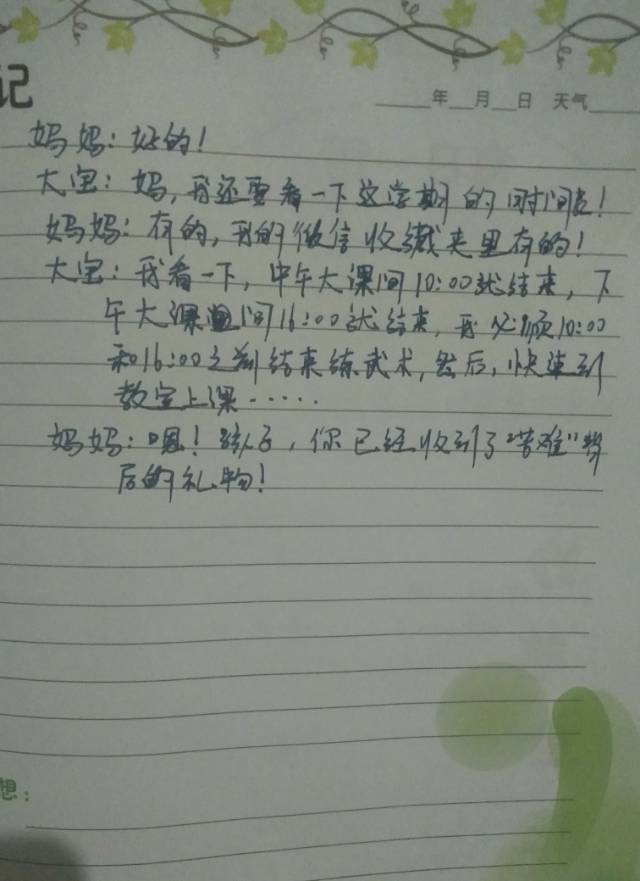 记
年 月 日 天气
妈妈：好的！
大宝：妈，我还要看一下这学期的时间表！
妈妈：有的，我的微信收藏夹里有的！
大宝：我看一下，中午大课间10:00就结束，下
午大课间16:00就结束，我必须10:00
和16:00之前结束练武术，然后，快速到
教室上课……
妈妈：嗯！孩子，你已经收到了“苦难”背
后的礼物！
想：